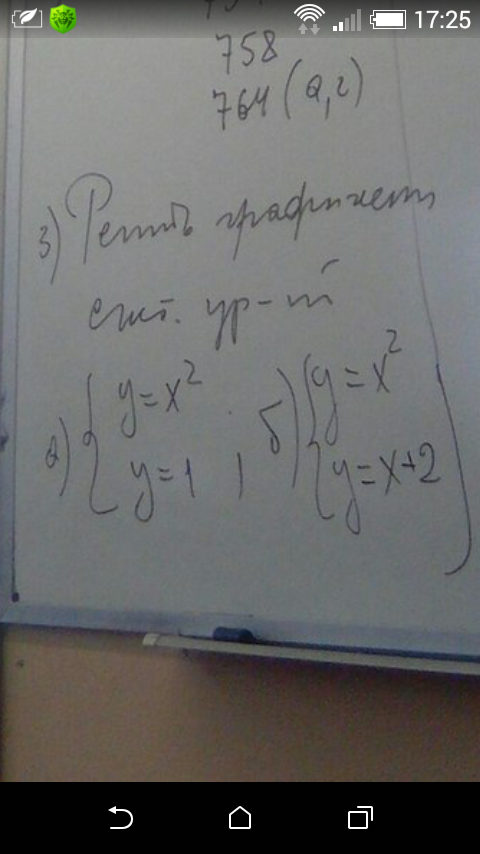 17:25
758
764 (а, г)
3) Решить графичеси
сист. ур-ий
а) { y = x²
y = 1 ,
б) { y = x²
y = x+2